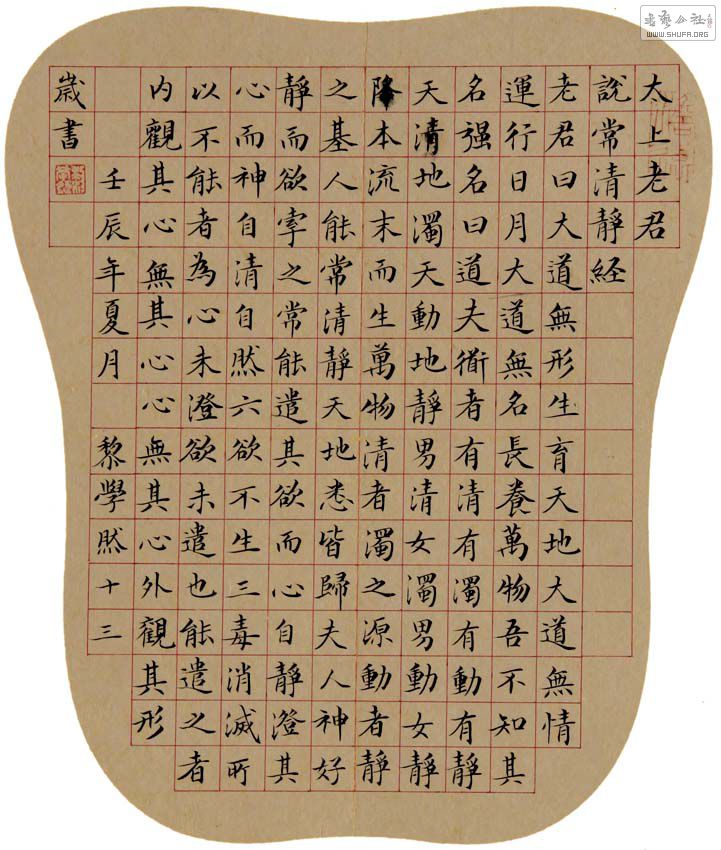 太上老君
說常清靜經
老君曰大道無形生育天地大道無情
運行日月大道無名長養萬物吾不知其
名强名曰道夫衜者有清有濁有動有靜
天清地濁天動地靜男清女濁男動女靜
降本流末而生萬物清者濁之源動者靜
之基人能常清靜天地悉皆歸夫人神好
靜而欲牽之常能遣其欲而心自靜澄其
心而神自清自然六欲不生三毒消滅所
以不能者為心未澄欲未遣也能遣之者
内觀其心無其心心無其心外觀其形
壬辰年夏月 黎學然十三
歲書
WWW.SHUFA.ORG